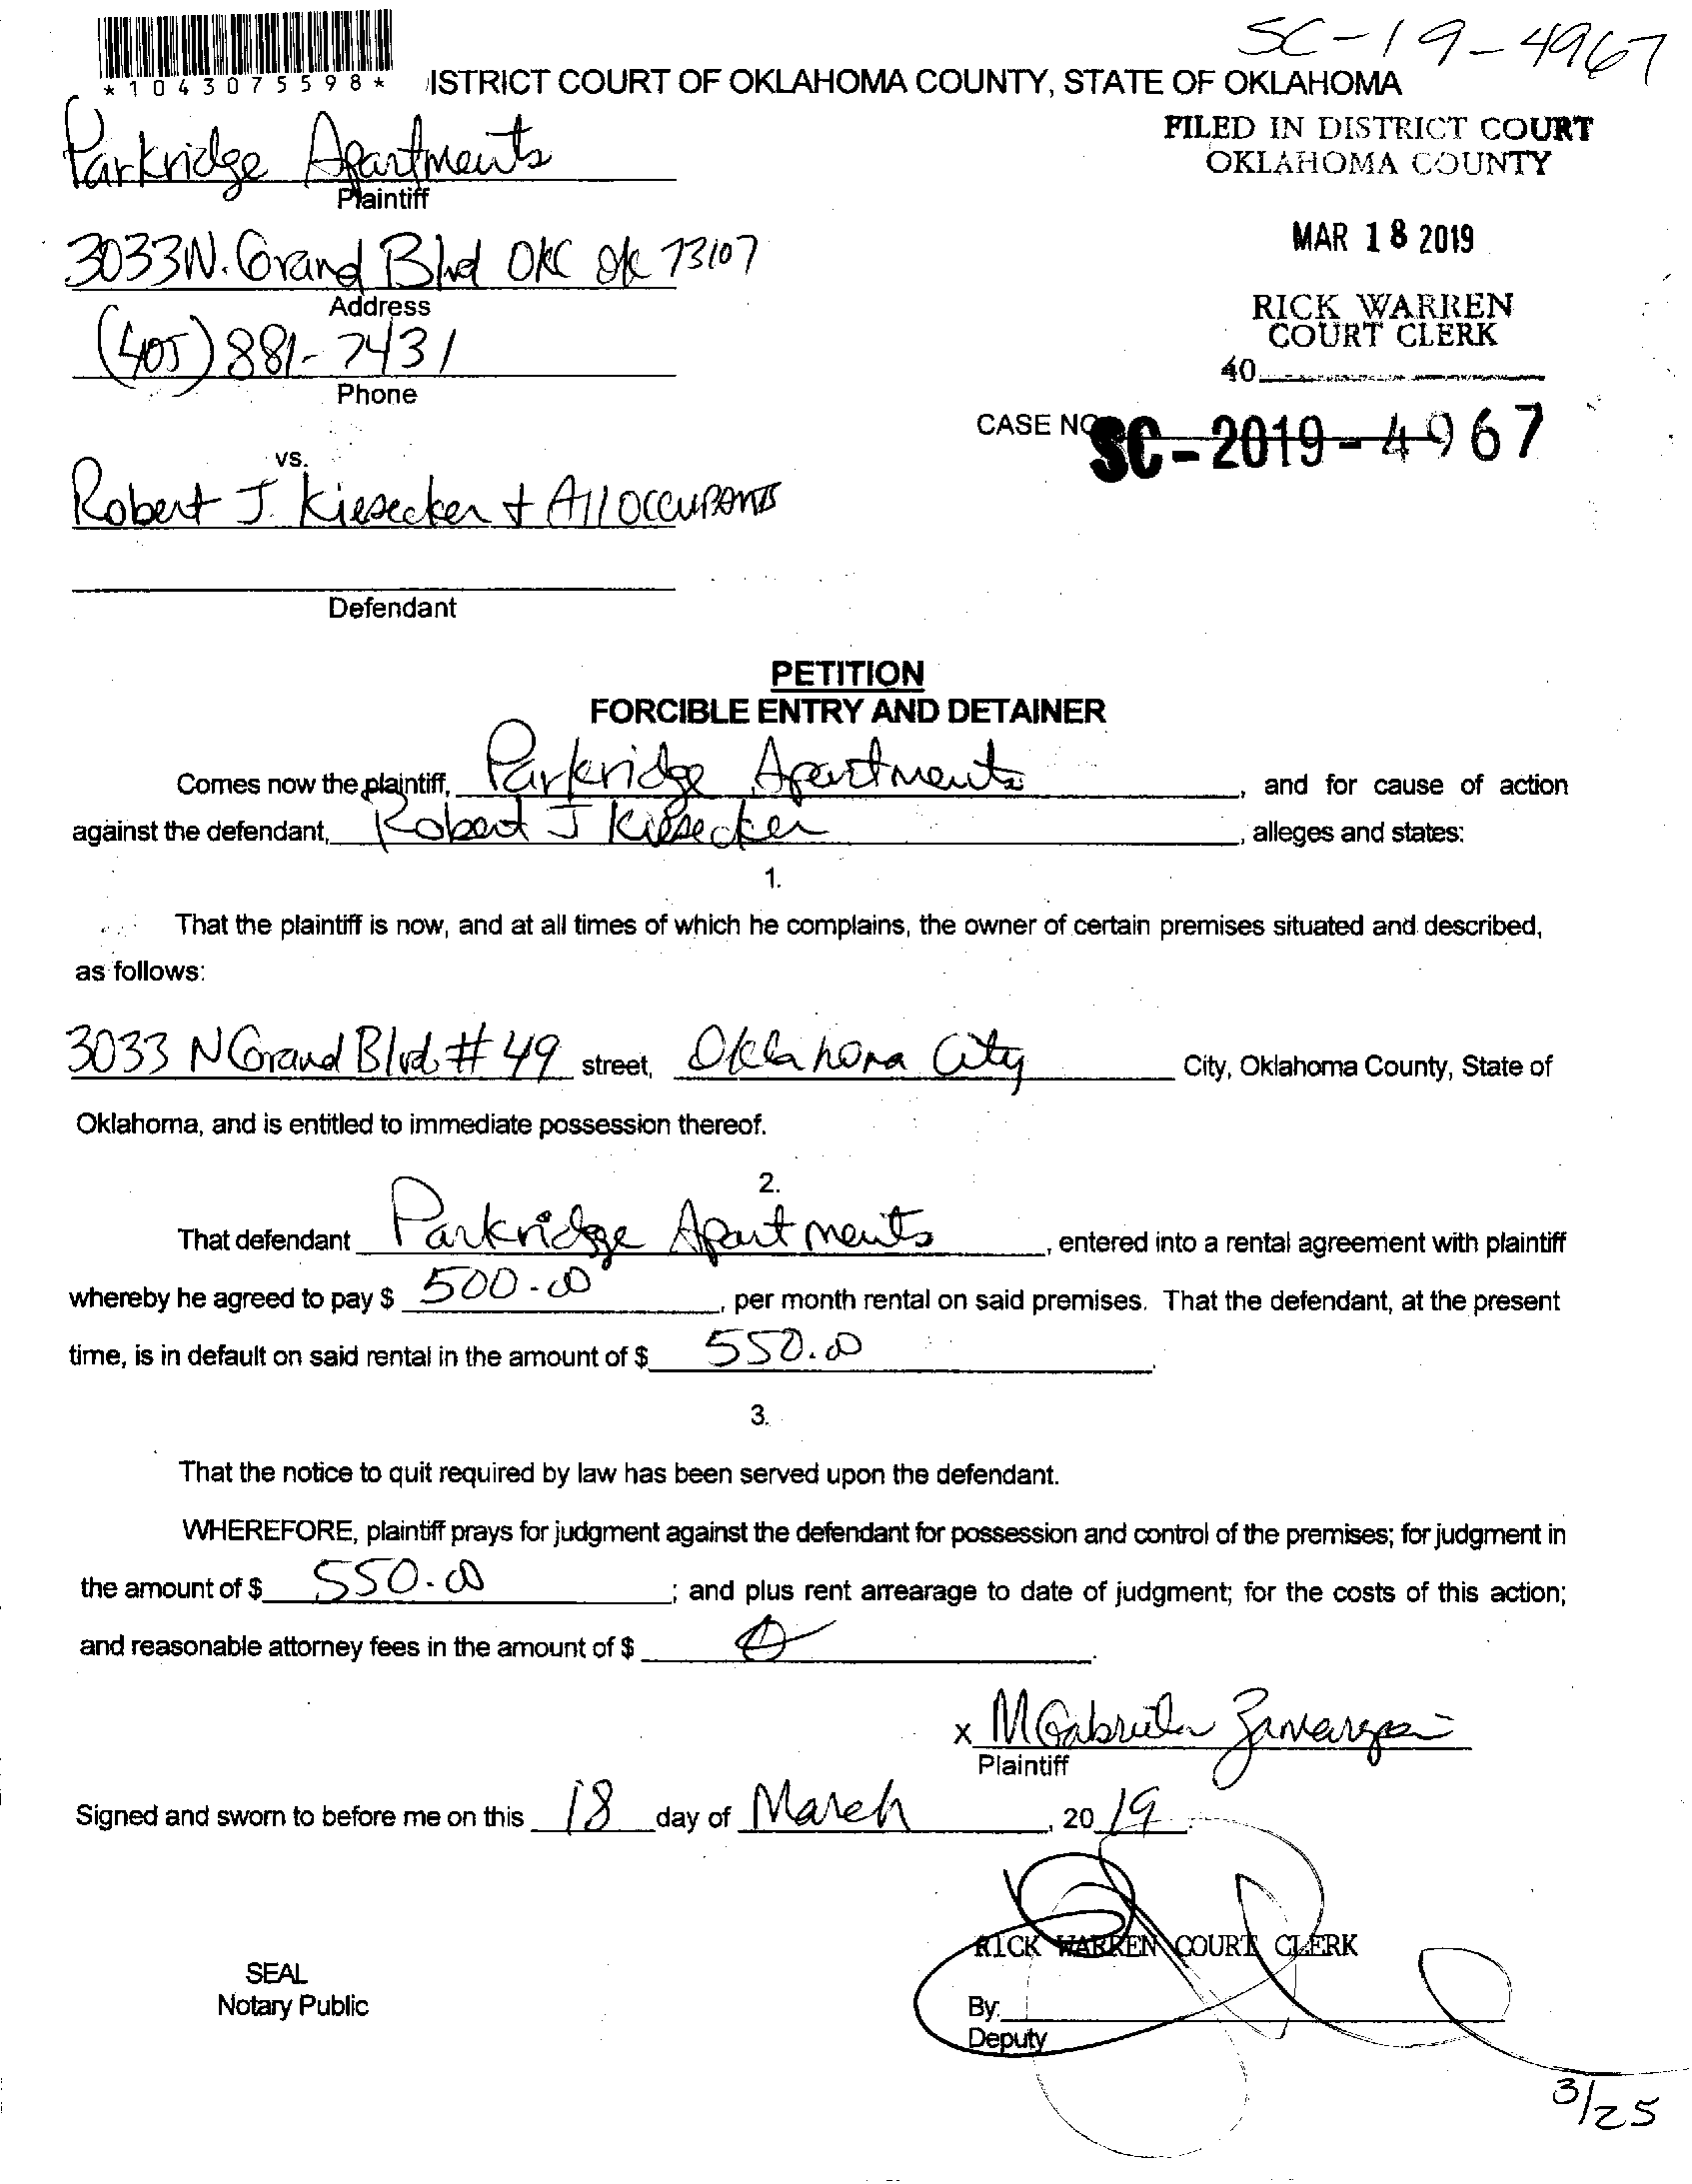 SC-19-4967
*1043075598*
ISTRICT COURT OF OKLAHOMA COUNTY, STATE OF OKLAHOMA
FILED IN DISTRICT COURT
OKLAHOMA COUNTY
Parkridge Apartments
Plaintiff
MAR 18 2019
3033 N. Grand Blvd OKC Ok 73107
Address
RICK WARREN
COURT CLERK
(405) 881-7431
Phone
40
CASE NO SC-2019-4967
vs.
Robert J. Kiesecker + All OCCUPANTS
Defendant
PETITION
FORCIBLE ENTRY AND DETAINER
Comes now the plaintiff, Parkridge Apartments, and for cause of action
against the defendant, Robert J Kiesecker, alleges and states:
1.
That the plaintiff is now, and at all times of which he complains, the owner of certain premises situated and described,
as follows:
3033 N Grand Blvd. # 49 street, Oklahoma City City, Oklahoma County, State of
Oklahoma, and is entitled to immediate possession thereof.
2.
That defendant Parkridge Apartments, entered into a rental agreement with plaintiff
whereby he agreed to pay $ 500.00, per month rental on said premises. That the defendant, at the present
time, is in default on said rental in the amount of $ 550.00.
3.
That the notice to quit required by law has been served upon the defendant.
WHEREFORE, plaintiff prays for judgment against the defendant for possession and control of the premises; for judgment in
the amount of $ 550.00; and plus rent arrearage to date of judgment; for the costs of this action;
and reasonable attorney fees in the amount of $
x M Gabriela
Plaintiff
Signed and sworn to before me on this 18 day of March, 20 19.
RICK WARREN COURT CLERK
SEAL
Notary Public
By:
Deputy
3/25